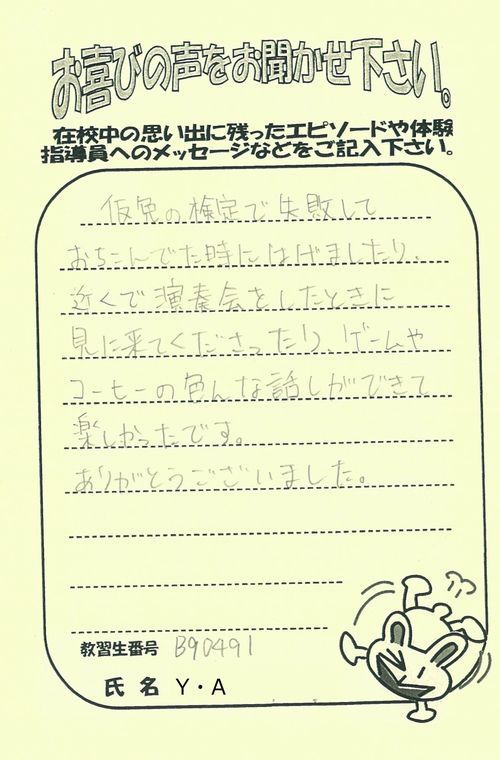 お喜びの声をお聞かせ下さい。
在校中の思い出に残ったエピソードや体験
指導員へのメッセージなどをご記入下さい。
仮免の検定で失敗して
おちこんでた時にはげましたり、
近くで演奏会をしたときに
見に来てくださったり、ゲームや
コーヒーの色んな話しができて
楽しかったです。
ありがとうございました。
教習生番号 B90491
氏名 Y・A